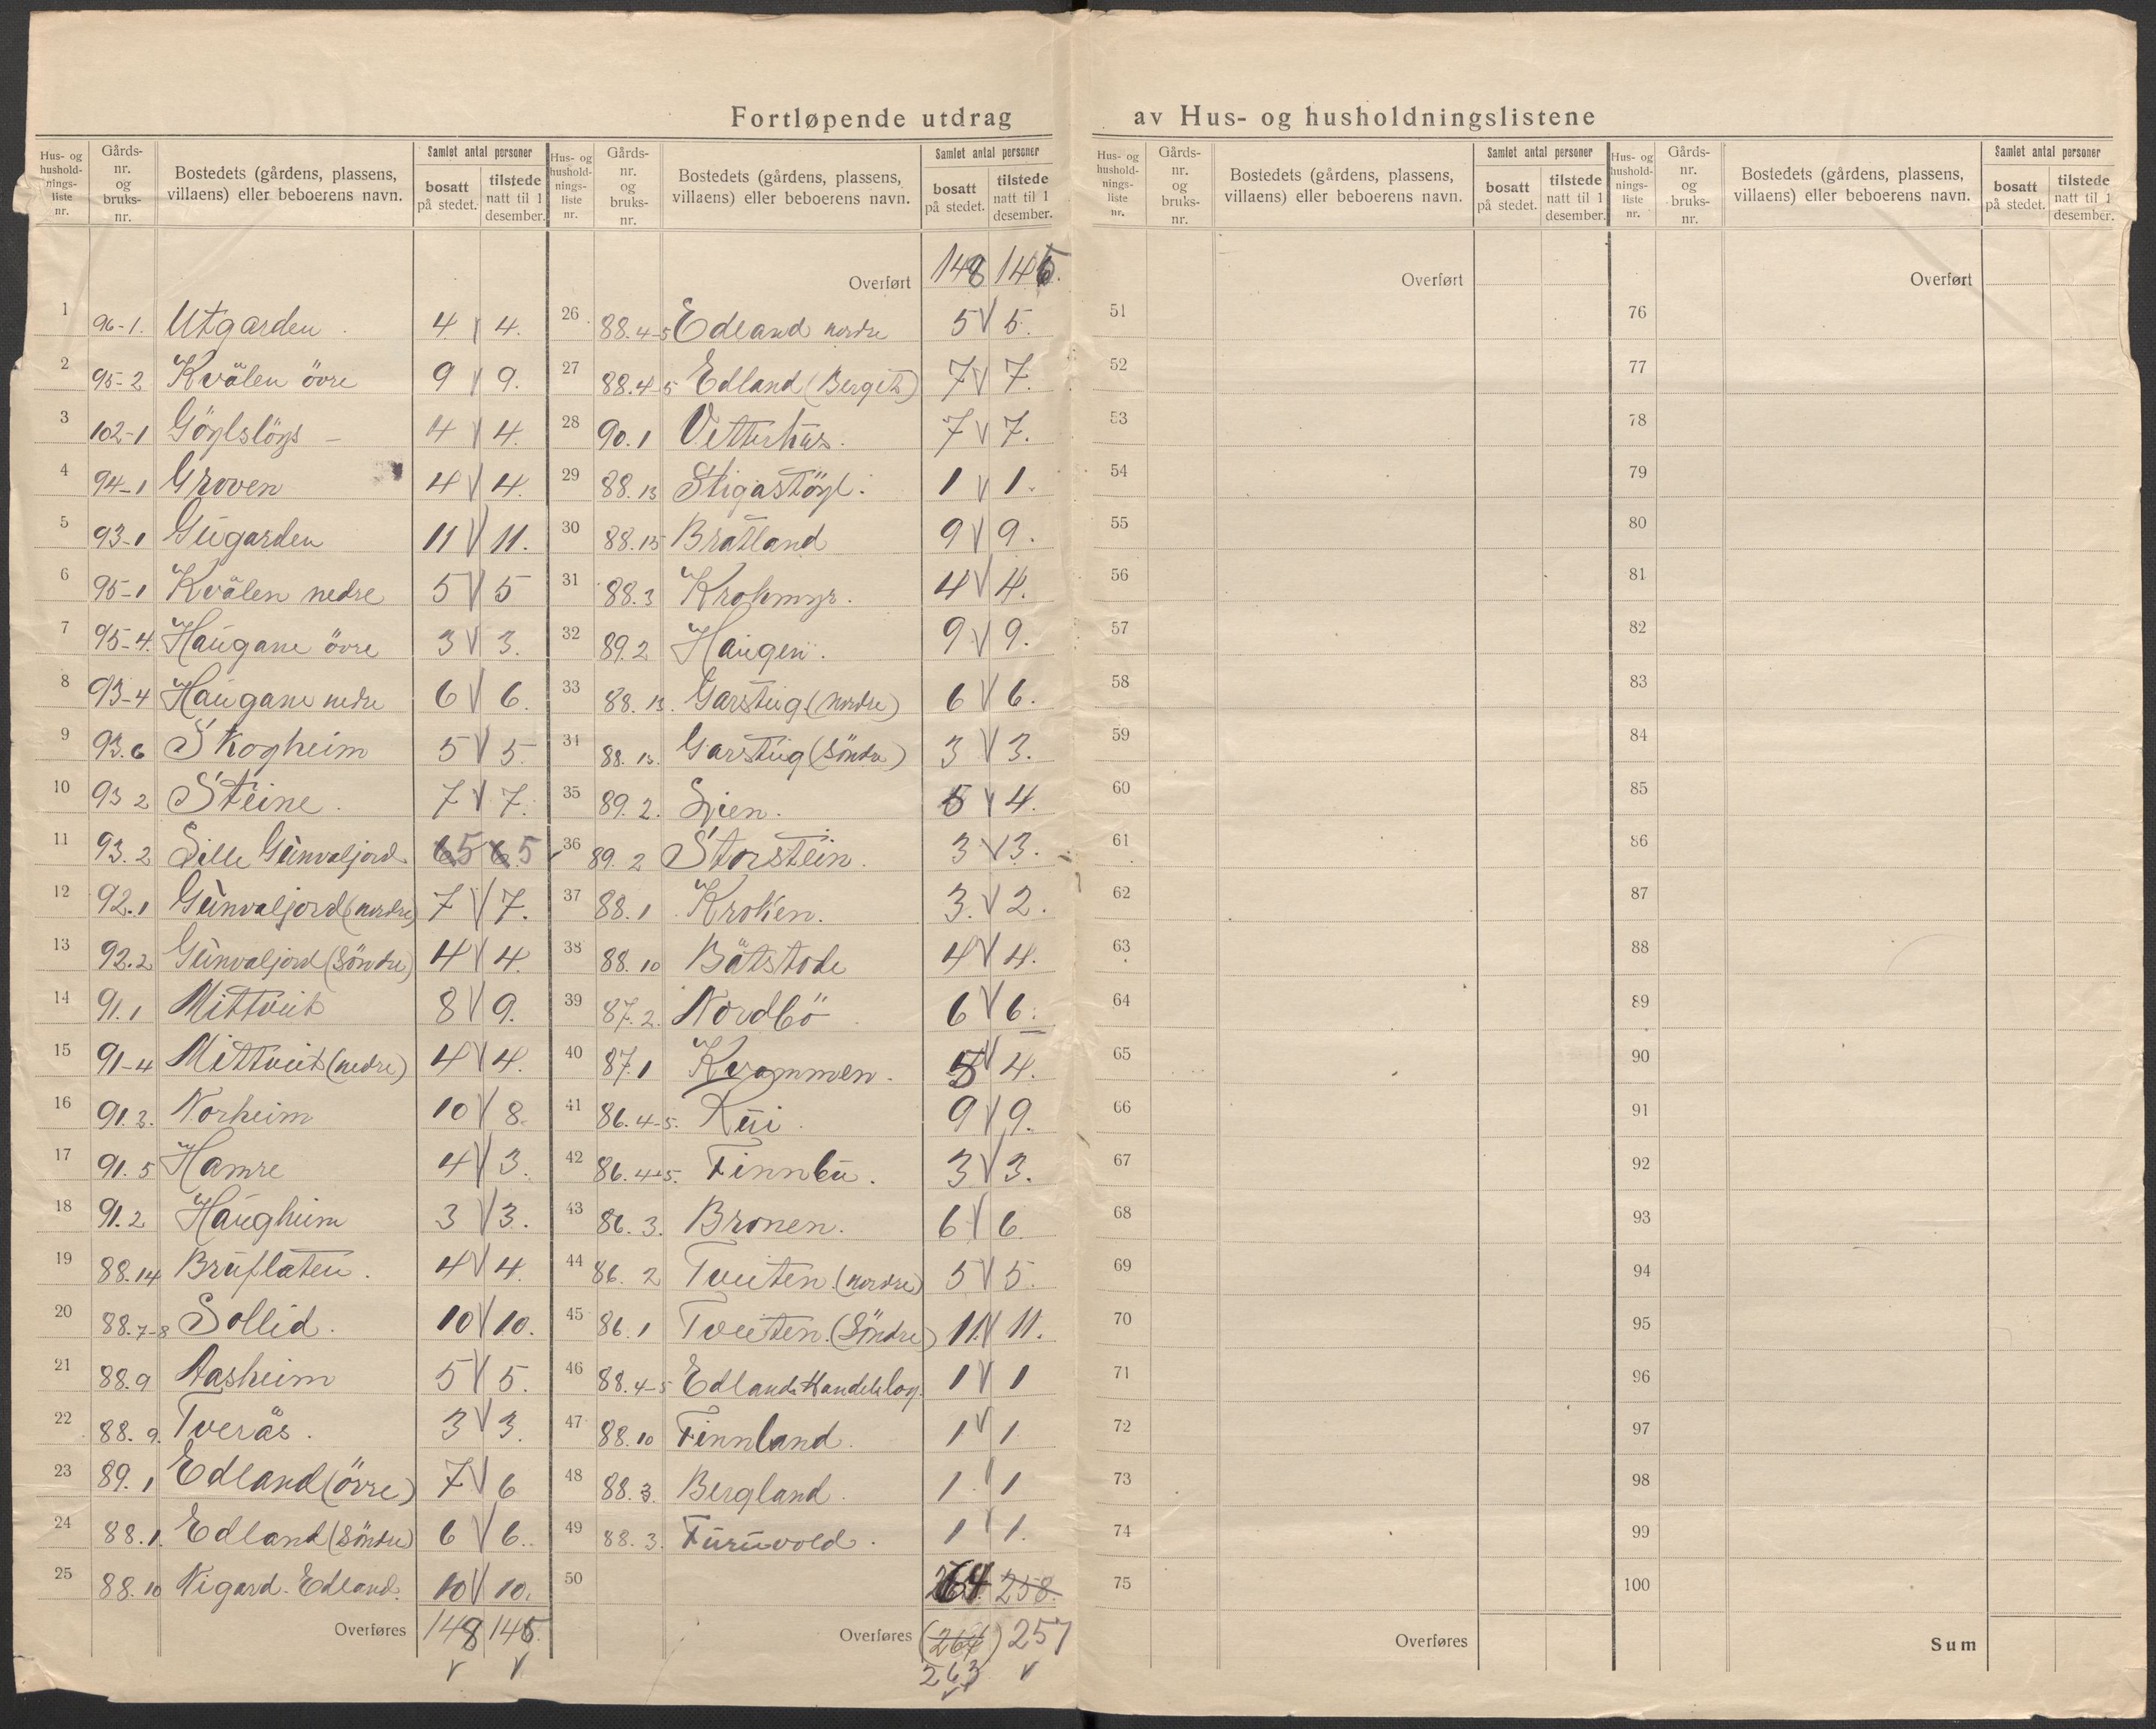 Fortløpende utdrag av Hus- og husholdningslistene
Hus- og hushold-nings-liste nr. | Gårds-nr. og bruks-nr. | Bostedets (gårdens, plassens, villaens) eller beboerens navn. | Samlet antal personer | bosatt på stedet. | tilstede natt til 1 desember.
1 96-1. Utgarden 4 V 4.
2 95-2 Kvålen övre 9 V 9.
3 102-1 4 V 4.
4 94-1 Groven 4 V 4.
5 93-1 Gugarden 11 V 11.
6 95-1 Kvålen nedre 5 V 5
7 95-4. Haugane övre 3 V 3.
8 93-4 Haugane nedre 6 V 6.
9 93.6 Skogheim 5 V 5.
10 93 2 Steine. 7 V 7.
11 93.2 Lille Gunvaljord 65 65
12 92.1 Gunvaljord (nordre) 7 V 7.
13 92.2 Gunvaljord (Söndre) 4 V 4.
14 91.1 Mittveit 8 V 9.
15 91-4 Mittveit (nedre) 4 V 4.
16 91.3. Norheim 10 V 8.
17 91.5 Hamre 4 V 3.
18 91.2 Haugheim 3 V 3.
19 88.14 Bruflaten. 4 V 4.
20 88.7-8 Sollid. 10 V 10.
21 88.9 Aasheim 5 V 5.
22 88.9. Tverås. 3 V 3.
23 89.1 Edland (övre) 7 V 6
24 88.1. Edland (Söndre) 6 V 6.
25 88.10 Nigard-Edland. 10 V 10.
Overføres 148 146.
V V
Hus- og hushold-nings-liste nr. | Gårds-nr. og bruks-nr. | Bostedets (gårdens, plassens, villaens) eller beboerens navn. | Samlet antal personer | bosatt på stedet. | tilstede natt til 1 desember.
Overført 148 146.
26 88.4-5 Edland nordre 5 V 5.
27 88.4-5 Edland (Berget) 7 V 7.
28 90.1 Vetterhus. 7 V 7.
29 88.13 Stigastöyl. 1 V 1.
30 88.15 Bratland 9 V 9.
31 88.3 Krokmyr. 4 V 4.
32 89.2 Haugen. 9 V 9.
33 88.13. Garstug (nordre) 6 V 6.
34 88.13. Garstug (Söndre) 3 V 3.
35 89.2. Lien. 5 V 4.
36 89.2 Storstein. 3 V 3.
37 88.1 Kroken. 3. V 2.
38 88.10 Båtstode 4 V 4.
39 87.2. Nordbö 6 V 6.
40 87.1 Kvammen. 5 V 4.
41 86.4-5. Rui. 9 V 9.
42 86.4-5. Finnbu. 3 V 3.
43 86.3. Bronen. 6 V 6
44 86.2 Tveiten (nordre) 5 V 5.
45 86.1 Tveiten. (Söndre) 11. V 11.
46 88.4-5 Edlands Handelslag. 1 V 1
47 88.10 Finnland. 1 V 1
48 88.3. Bergland. 1 V 1
49 88.3. Furuvold. 1 V 1.
50 264 258.
Overføres (264) 257
263 V
V
Hus- og hushold-nings-liste nr. | Gårds-nr. og bruks-nr. | Bostedets (gårdens, plassens, villaens) eller beboerens navn. | Samlet antal personer | bosatt på stedet. | tilstede natt til 1 desember.
Overført
51
52
53
54
55
56
57
58
59
60
61
62
63
64
65
66
67
68
69
70
71
72
73
74
75
Overføres
Hus- og hushold-nings-liste nr. | Gårds-nr. og bruks-nr. | Bostedets (gårdens, plassens, villaens) eller beboerens navn. | Samlet antal personer | bosatt på stedet. | tilstede natt til 1 desember.
Overført
76
77
78
79
80
81
82
83
84
85
86
87
88
89
90
91
92
93
94
95
96
97
98
99
100
Sum